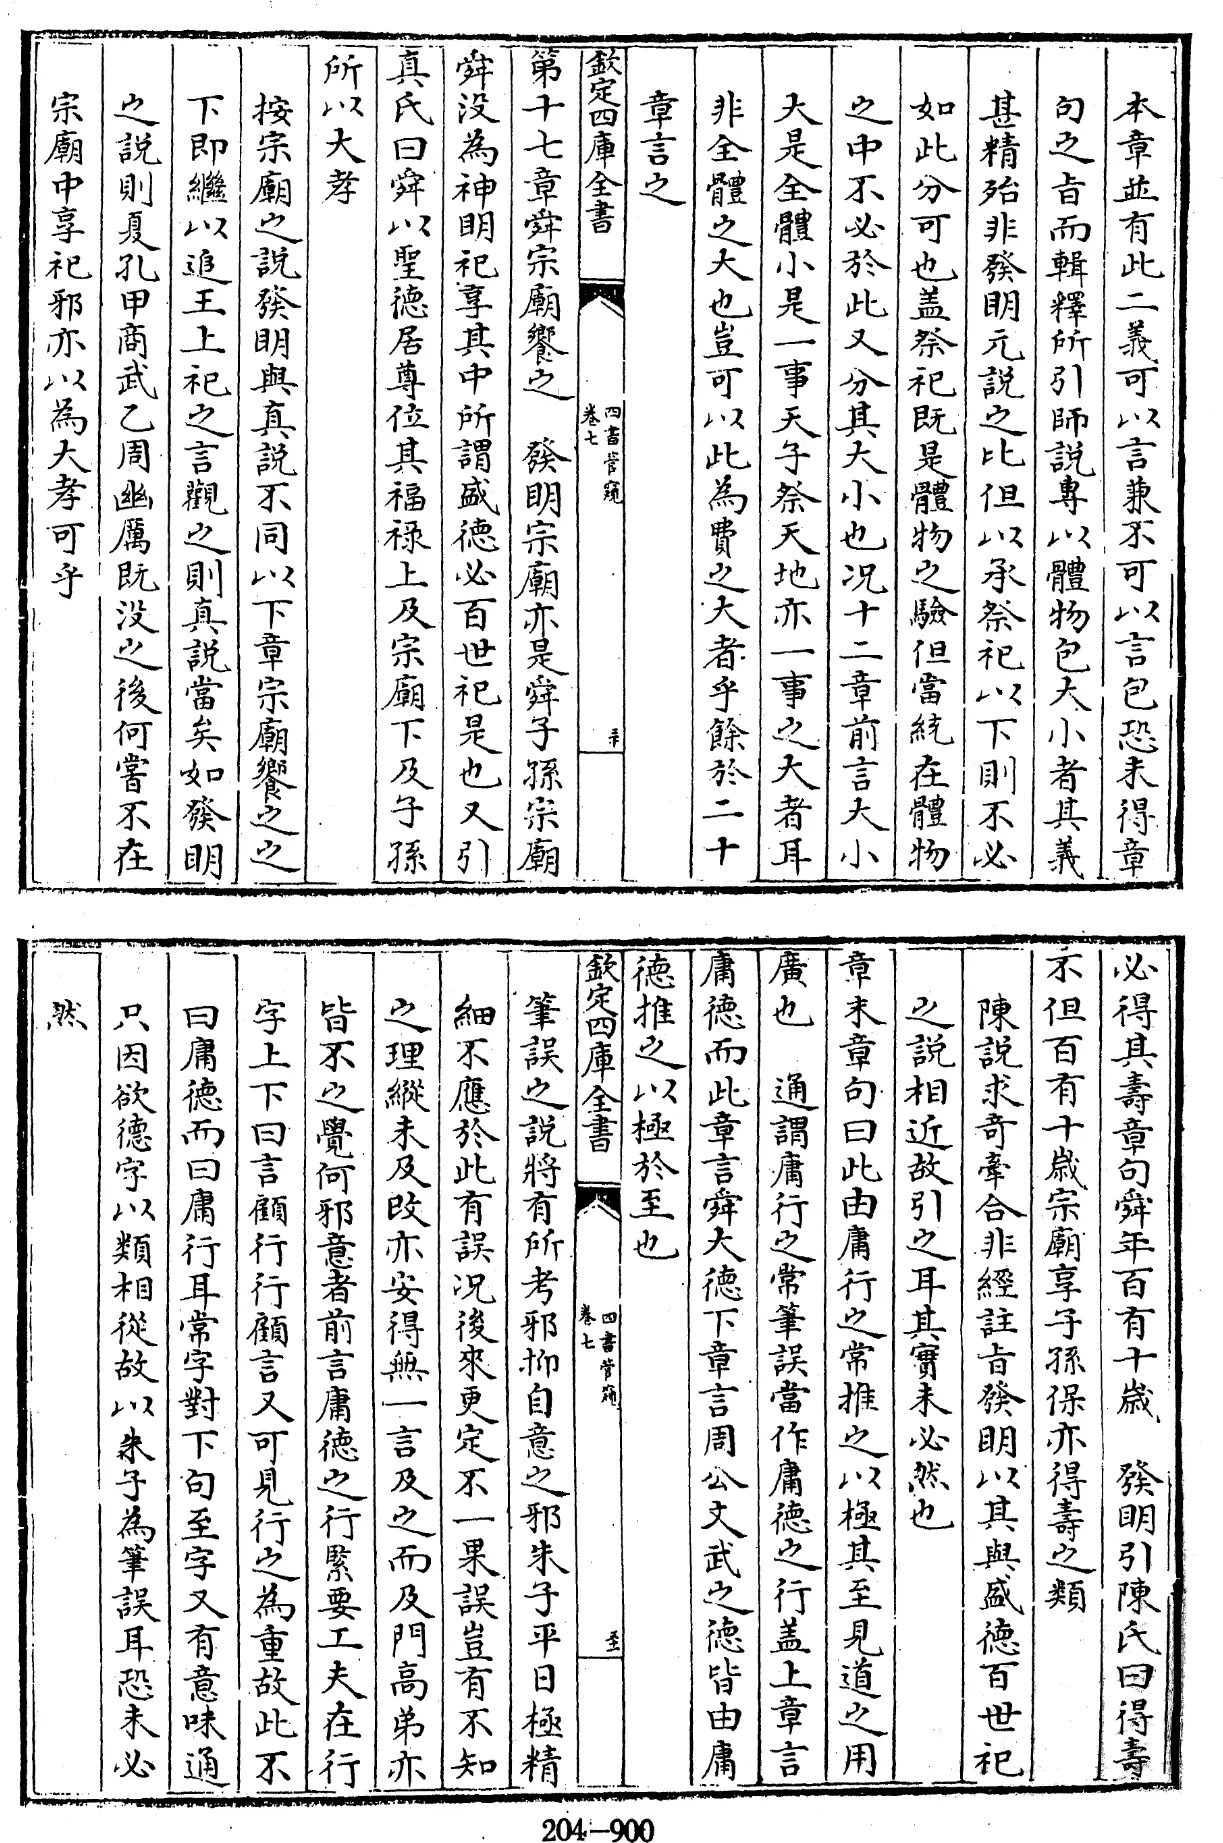 本章並有此二義可以言兼不可以言包恐未得章
句之旨而輯釋所引師説專以體物包大小者其義
甚精殆非發明元説之比但以承祭祀以下則不必
如此分可也盖祭祀既是體物之驗但當統在體物
之中不必於此又分其大小也况十二章前言大小
大是全體小是一事天子祭天地亦一事之大者耳
非全體之大也豈可以此為費之大者乎餘於二十
章言之
欽定四庫全書
四書管窺
卷七
第十七章舜宗廟饗之　發明宗廟亦是舜子孫宗廟
舜没為神明祀享其中所謂盛德必百世祀是也又引
真氏曰舜以聖德居尊位其福祿上及宗廟下及子孫
所以大孝
按宗廟之説發明與真説不同以下章宗廟饗之之
下即繼以追王上祀之言觀之則真説當矣如發明
之説則夏孔甲商武乙周幽厲既没之後何嘗不在
宗廟中享祀邪亦以為大孝可乎
必得其壽章句舜年百有十歲　發明引陳氏曰得壽
不但百有十歲宗廟享子孫保亦得壽之類
陳説求奇牽合非經註旨發明以其與盛德百世祀
之説相近故引之耳其實未必然也
章末章句曰此由庸行之常推之以極其至見道之用
廣也　通謂庸行之常筆誤當作庸德之行盖上章言
庸德而此章言舜大德下章言周公文武之德皆由庸
德推之以極於至也
欽定四庫全書
四書管窺
卷七
筆誤之説將有所考邪抑自意之邪朱子平日極精
細不應於此有誤况後來更定不一果誤豈有不知
之理縱未及改亦安得無一言及之而及門高弟亦
皆不之覺何邪意者前言庸德之行緊要工夫在行
字上下曰言顧行行顧言又可見行之為重故此不
曰庸德而曰庸行耳常字對下句至字又有意味通
只因欲德字以類相從故以朱子為筆誤耳恐未必
然
204—900